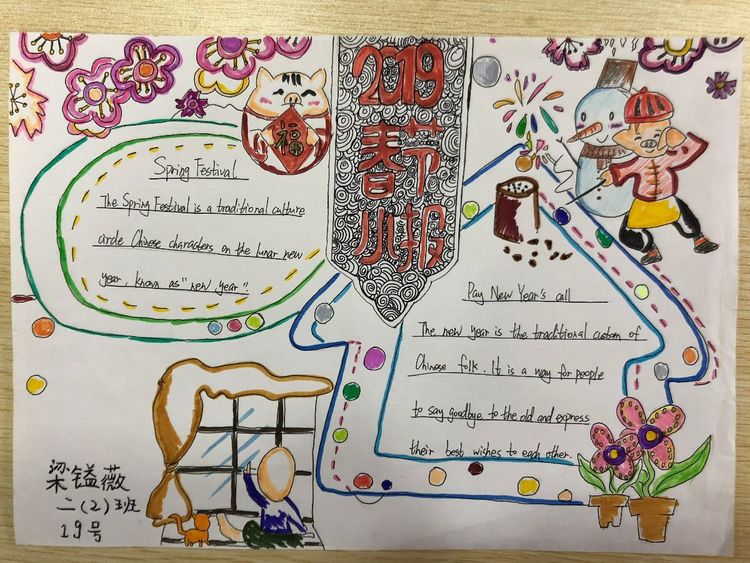 2019
春节
小报
福
Spring Festival
The Spring Festival is a traditional culture
circle Chinese characters on the lunar new
year, known as "new year".
Pay New Year's call
The new year is the traditional custom of
Chinese folk. It is a way for people
to say goodbye to the old and express
their best wishes to each other.
梁镒薇
二(2)班
19号